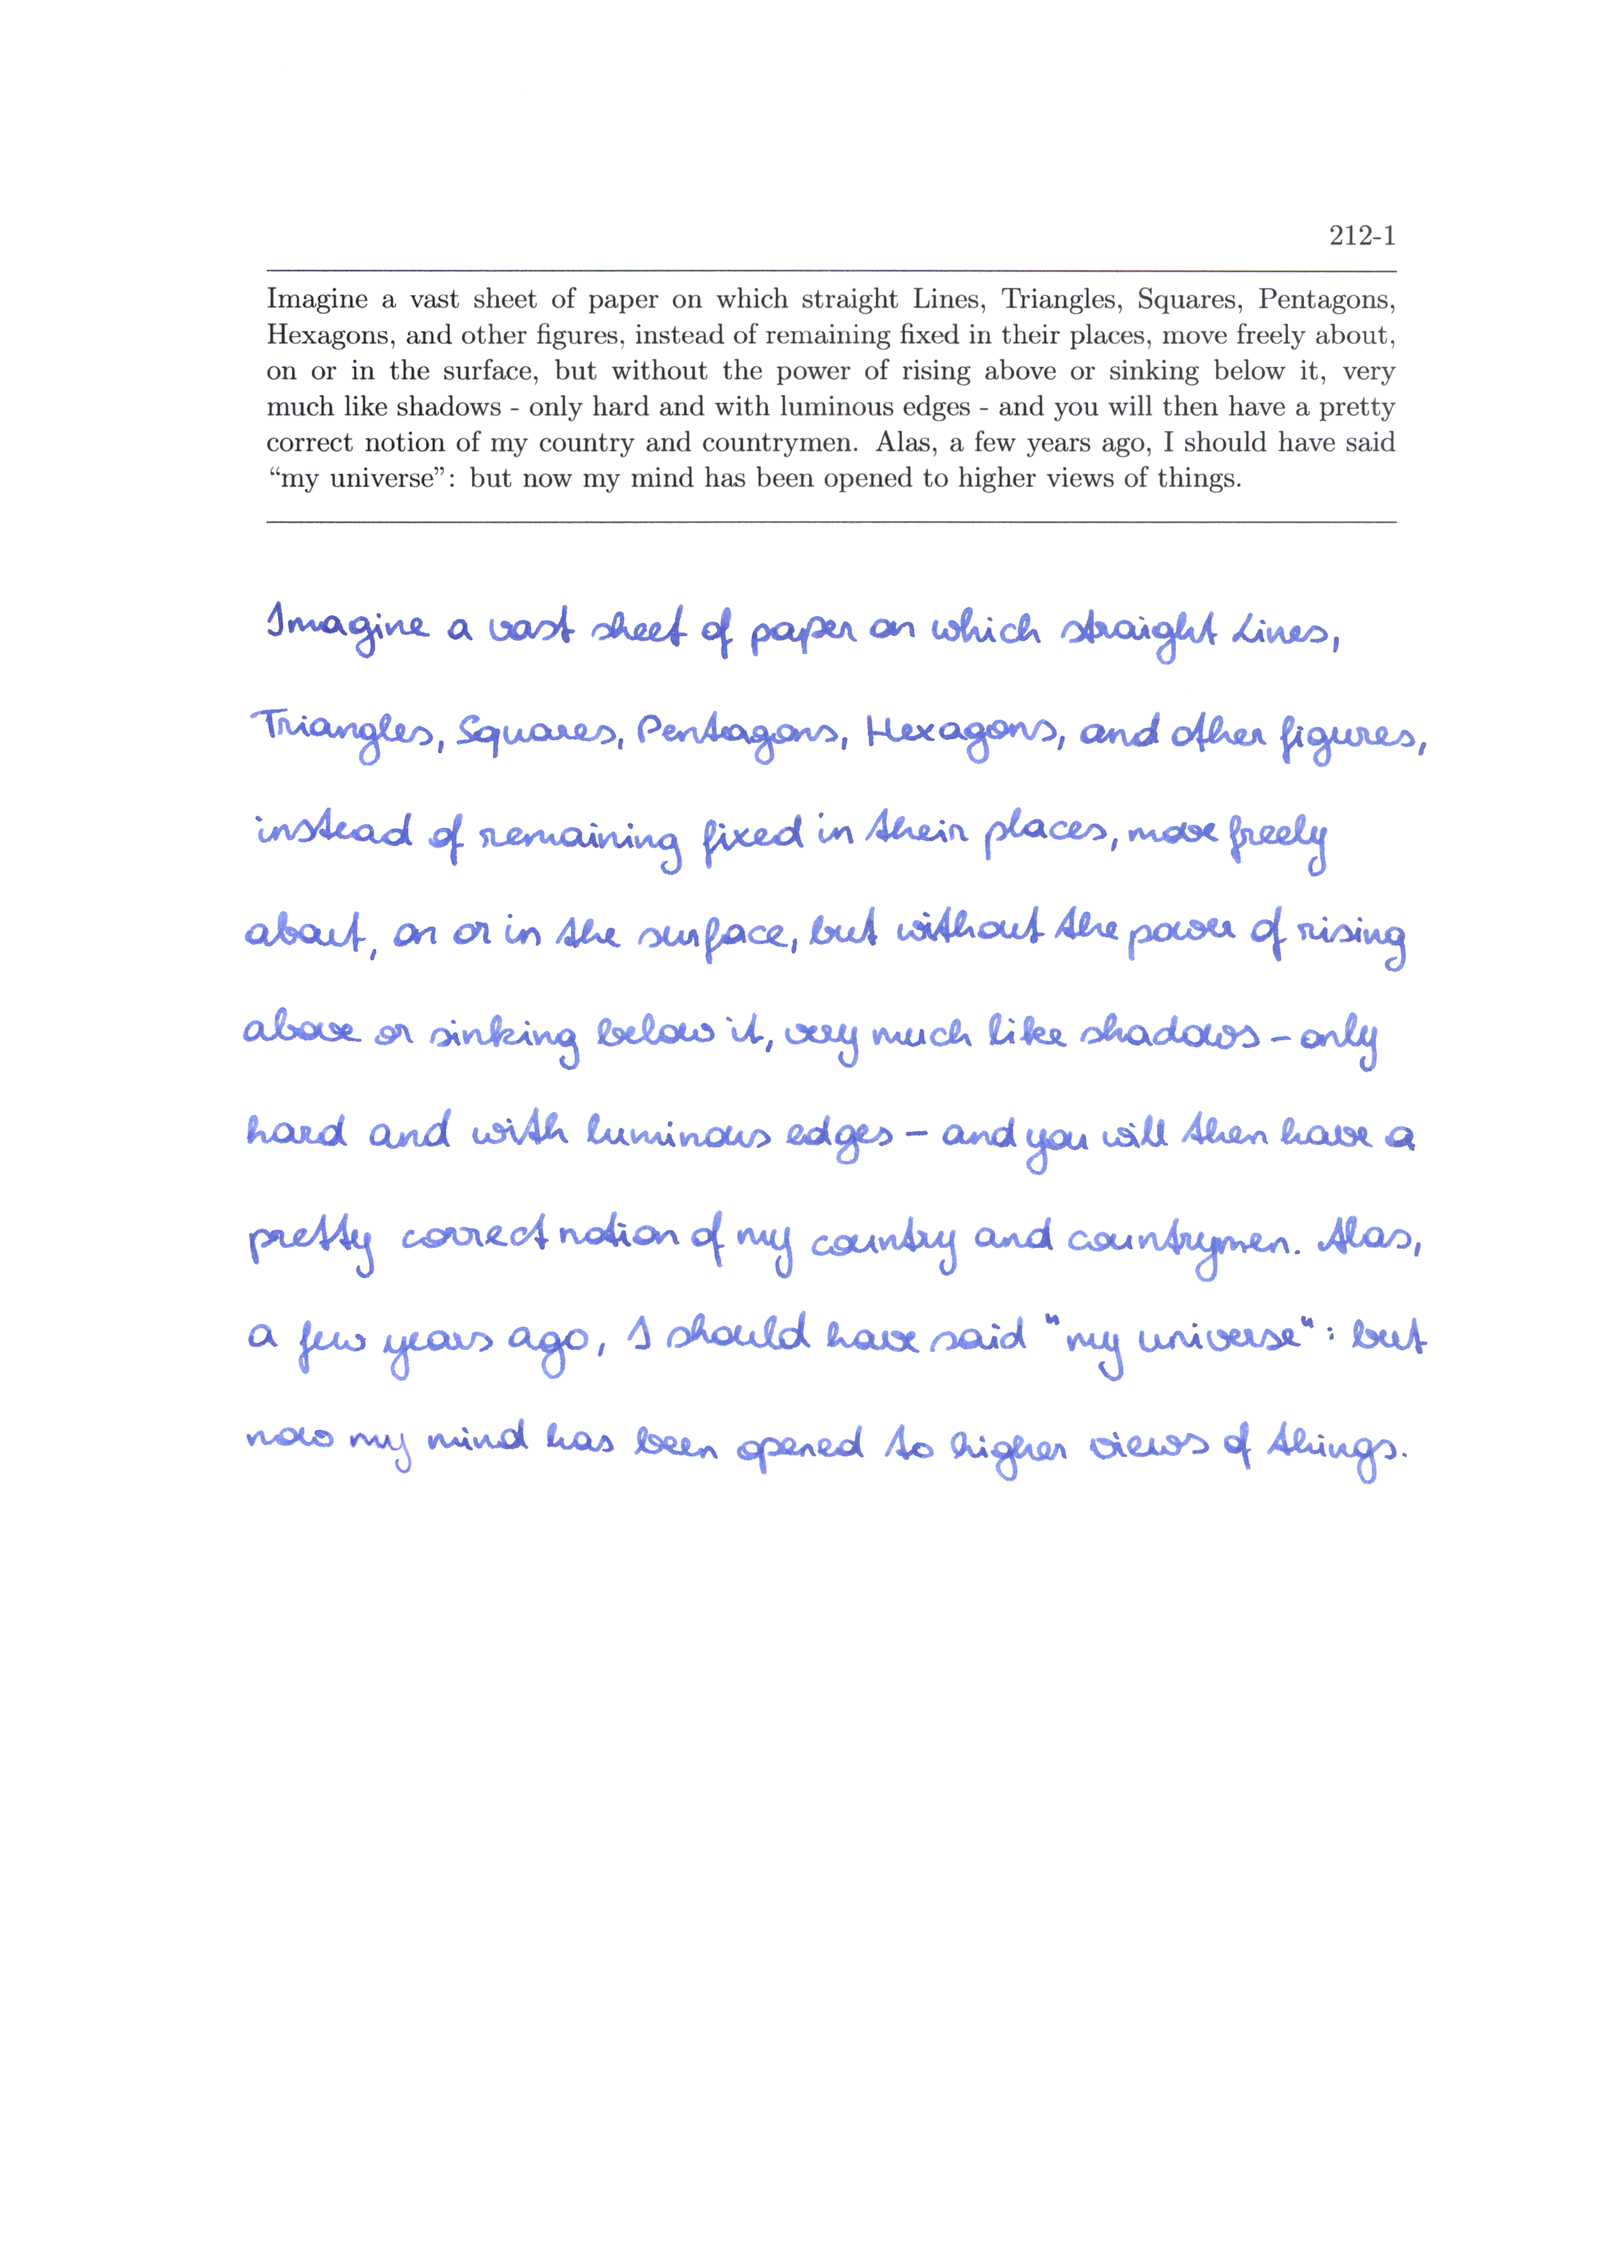 212-1
Imagine a vast sheet of paper on which straight Lines, Triangles, Squares, Pentagons,
Hexagons, and other figures, instead of remaining fixed in their places, move freely about,
on or in the surface, but without the power of rising above or sinking below it, very
much like shadows - only hard and with luminous edges - and you will then have a pretty
correct notion of my country and countrymen. Alas, a few years ago, I should have said
“my universe”: but now my mind has been opened to higher views of things.
Imagine a vast sheet of paper on which straight Lines,
Triangles, Squares, Pentagons, Hexagons, and other figures,
instead of remaining fixed in their places, move freely
about, on or in the surface, but without the power of rising
above or sinking below it, very much like shadows – only
hard and with luminous edges – and you will then have a
pretty correct notion of my country and countrymen. Alas,
a few years ago, I should have said "my universe": but
now my mind has been opened to higher views of things.